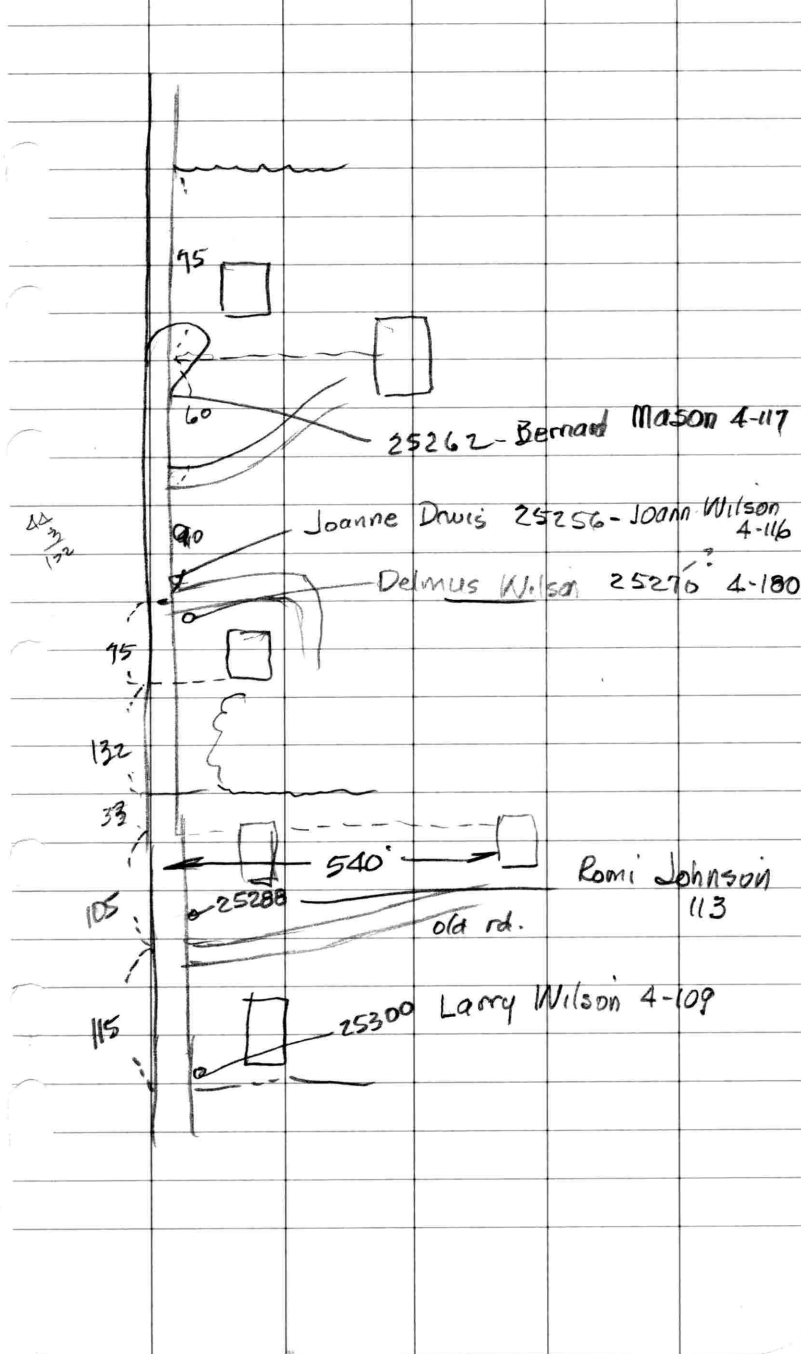 95
60
25262 - Bernard Mason 4-117
44
3
132
90
Joanne Davis 25256 - Joann Wilson
4-116
Delmus Wilson 25276? 4-180
95
132
33
540'
Romi Johnson
113
105
25288
old rd.
25300 Larry Wilson 4-109
115